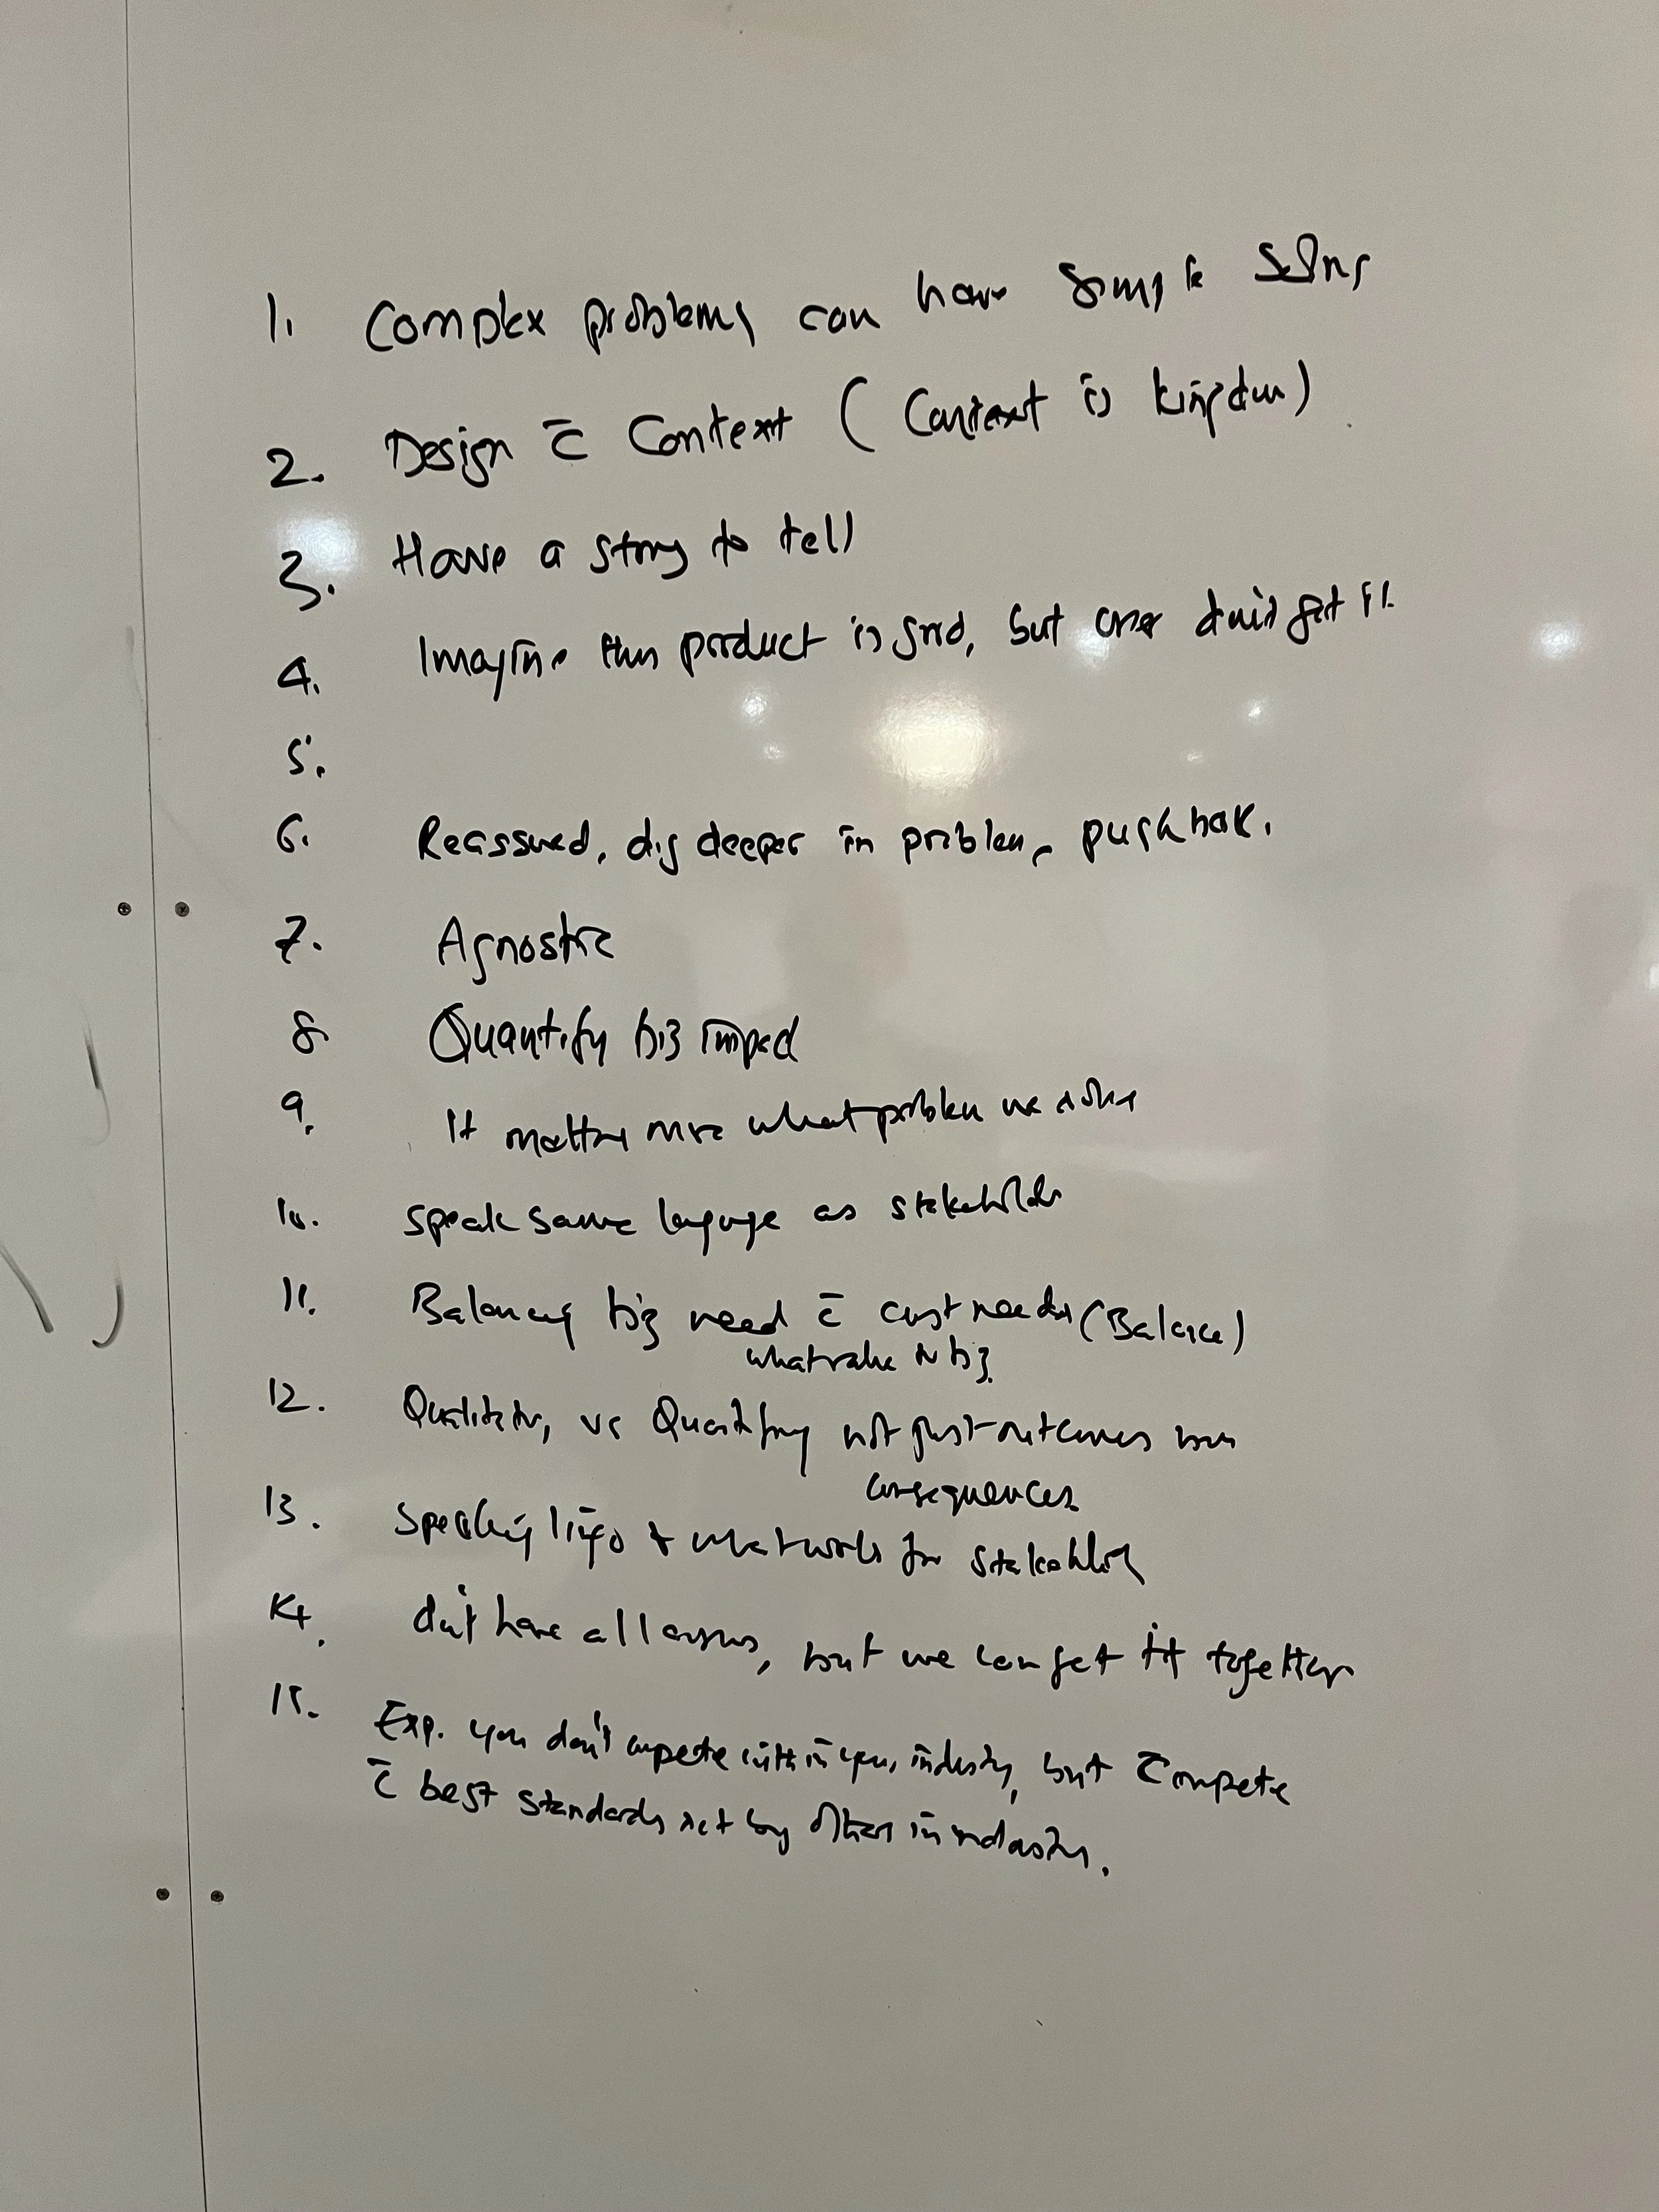 1. Complex problems can have simple solns
2. Design c̄ Context (Context is kingdom)
3. Have a story to tell
4. Imagine this product is good, but don't get it
5.
6. Reassured, dig deeper in problem, pushback.
7. Agnostic
8. Quantify biz impact
9. It matters more what problem we solve
10. Speak same language as stakeholder
11. Balancing biz need c̄ cust needs (Balance)
what value to biz.
12. Qualitative, vs Quantifying not just outcomes
consequences
13. Speaking lingo & what works for stakeholder
14. don't have all answers, but we can get it together
15. Exp. you don't compete within your industry, but compete
c̄ best standards set by others in industry.